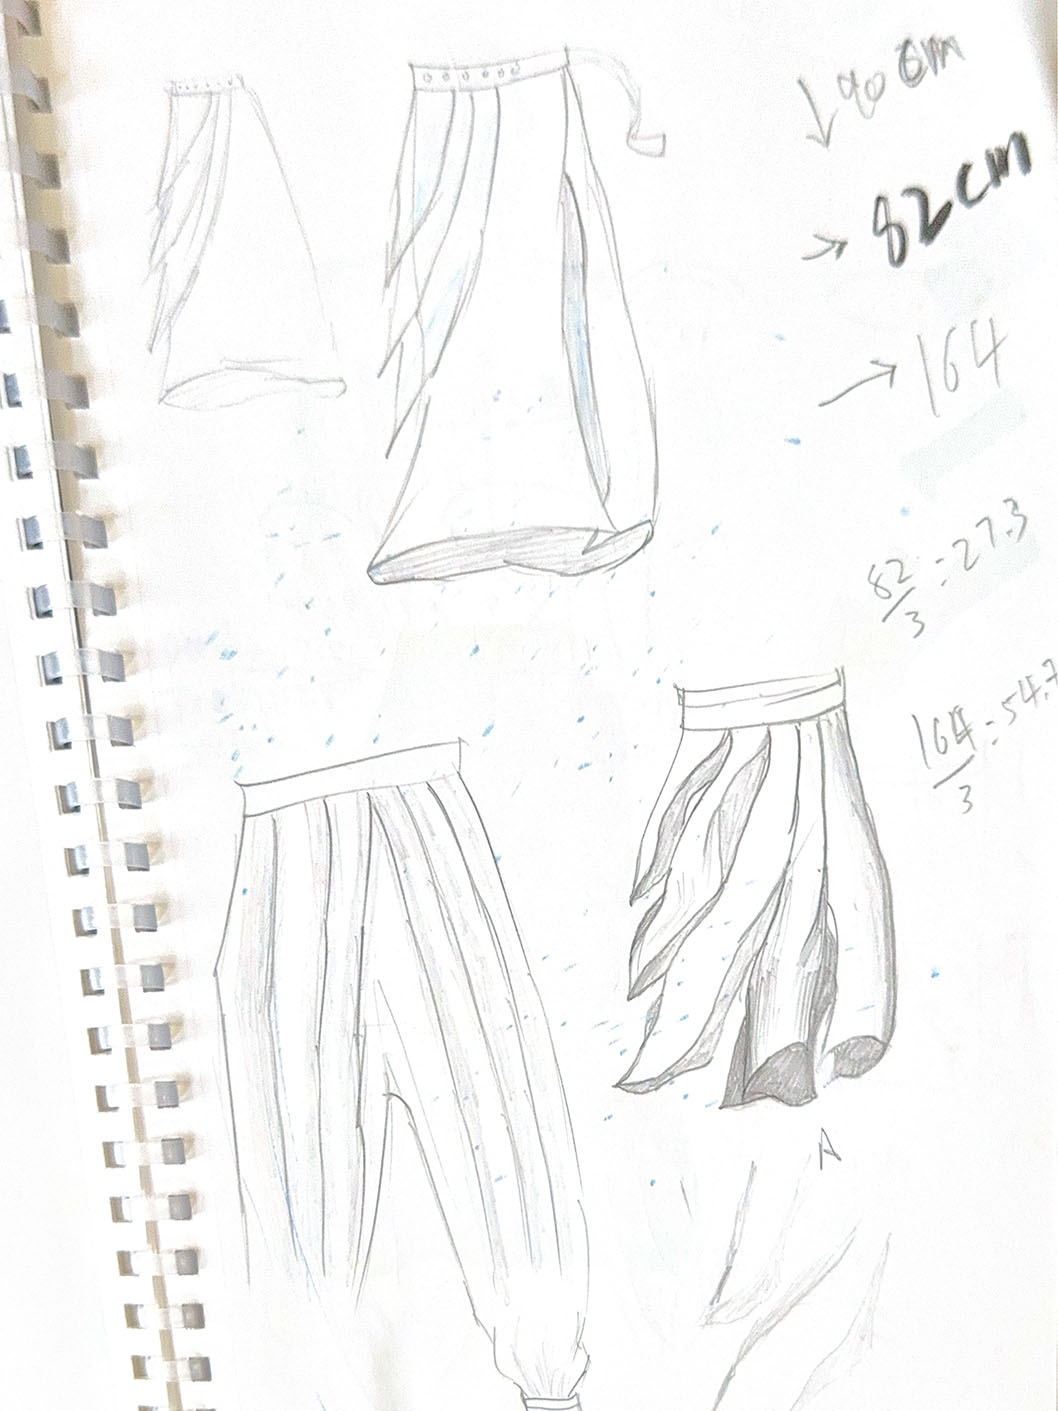 ↓ 90 cm
→ 82cm
→ 164
82/3 = 27.3
164/3 = 54.7
A